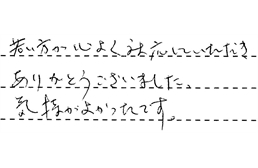 若い方が心よく対応していただき
ありがとうございました。
気持がよかったです。